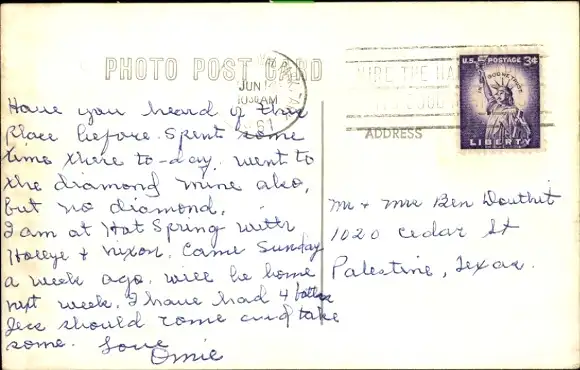 PHOTO POST CARD
JUN
10 30 AM
61
HIRE THE HA
U.S. POSTAGE 3¢
IN GOD WE TRUST
LIBERTY
ADDRESS
Have you heard of this
place before. Spent some
time there to-day. went to
the diamond mine also,
but no diamond.
I am at Hot Spring with
Holleye & Nixon. Came Sunday
a week ago. will be home
next week. I have had 4 baths
Jess should come and take
some. Love
Omie
Mr + Mrs Ben Douthit
1020 Cedar St
Palestine, Texas.